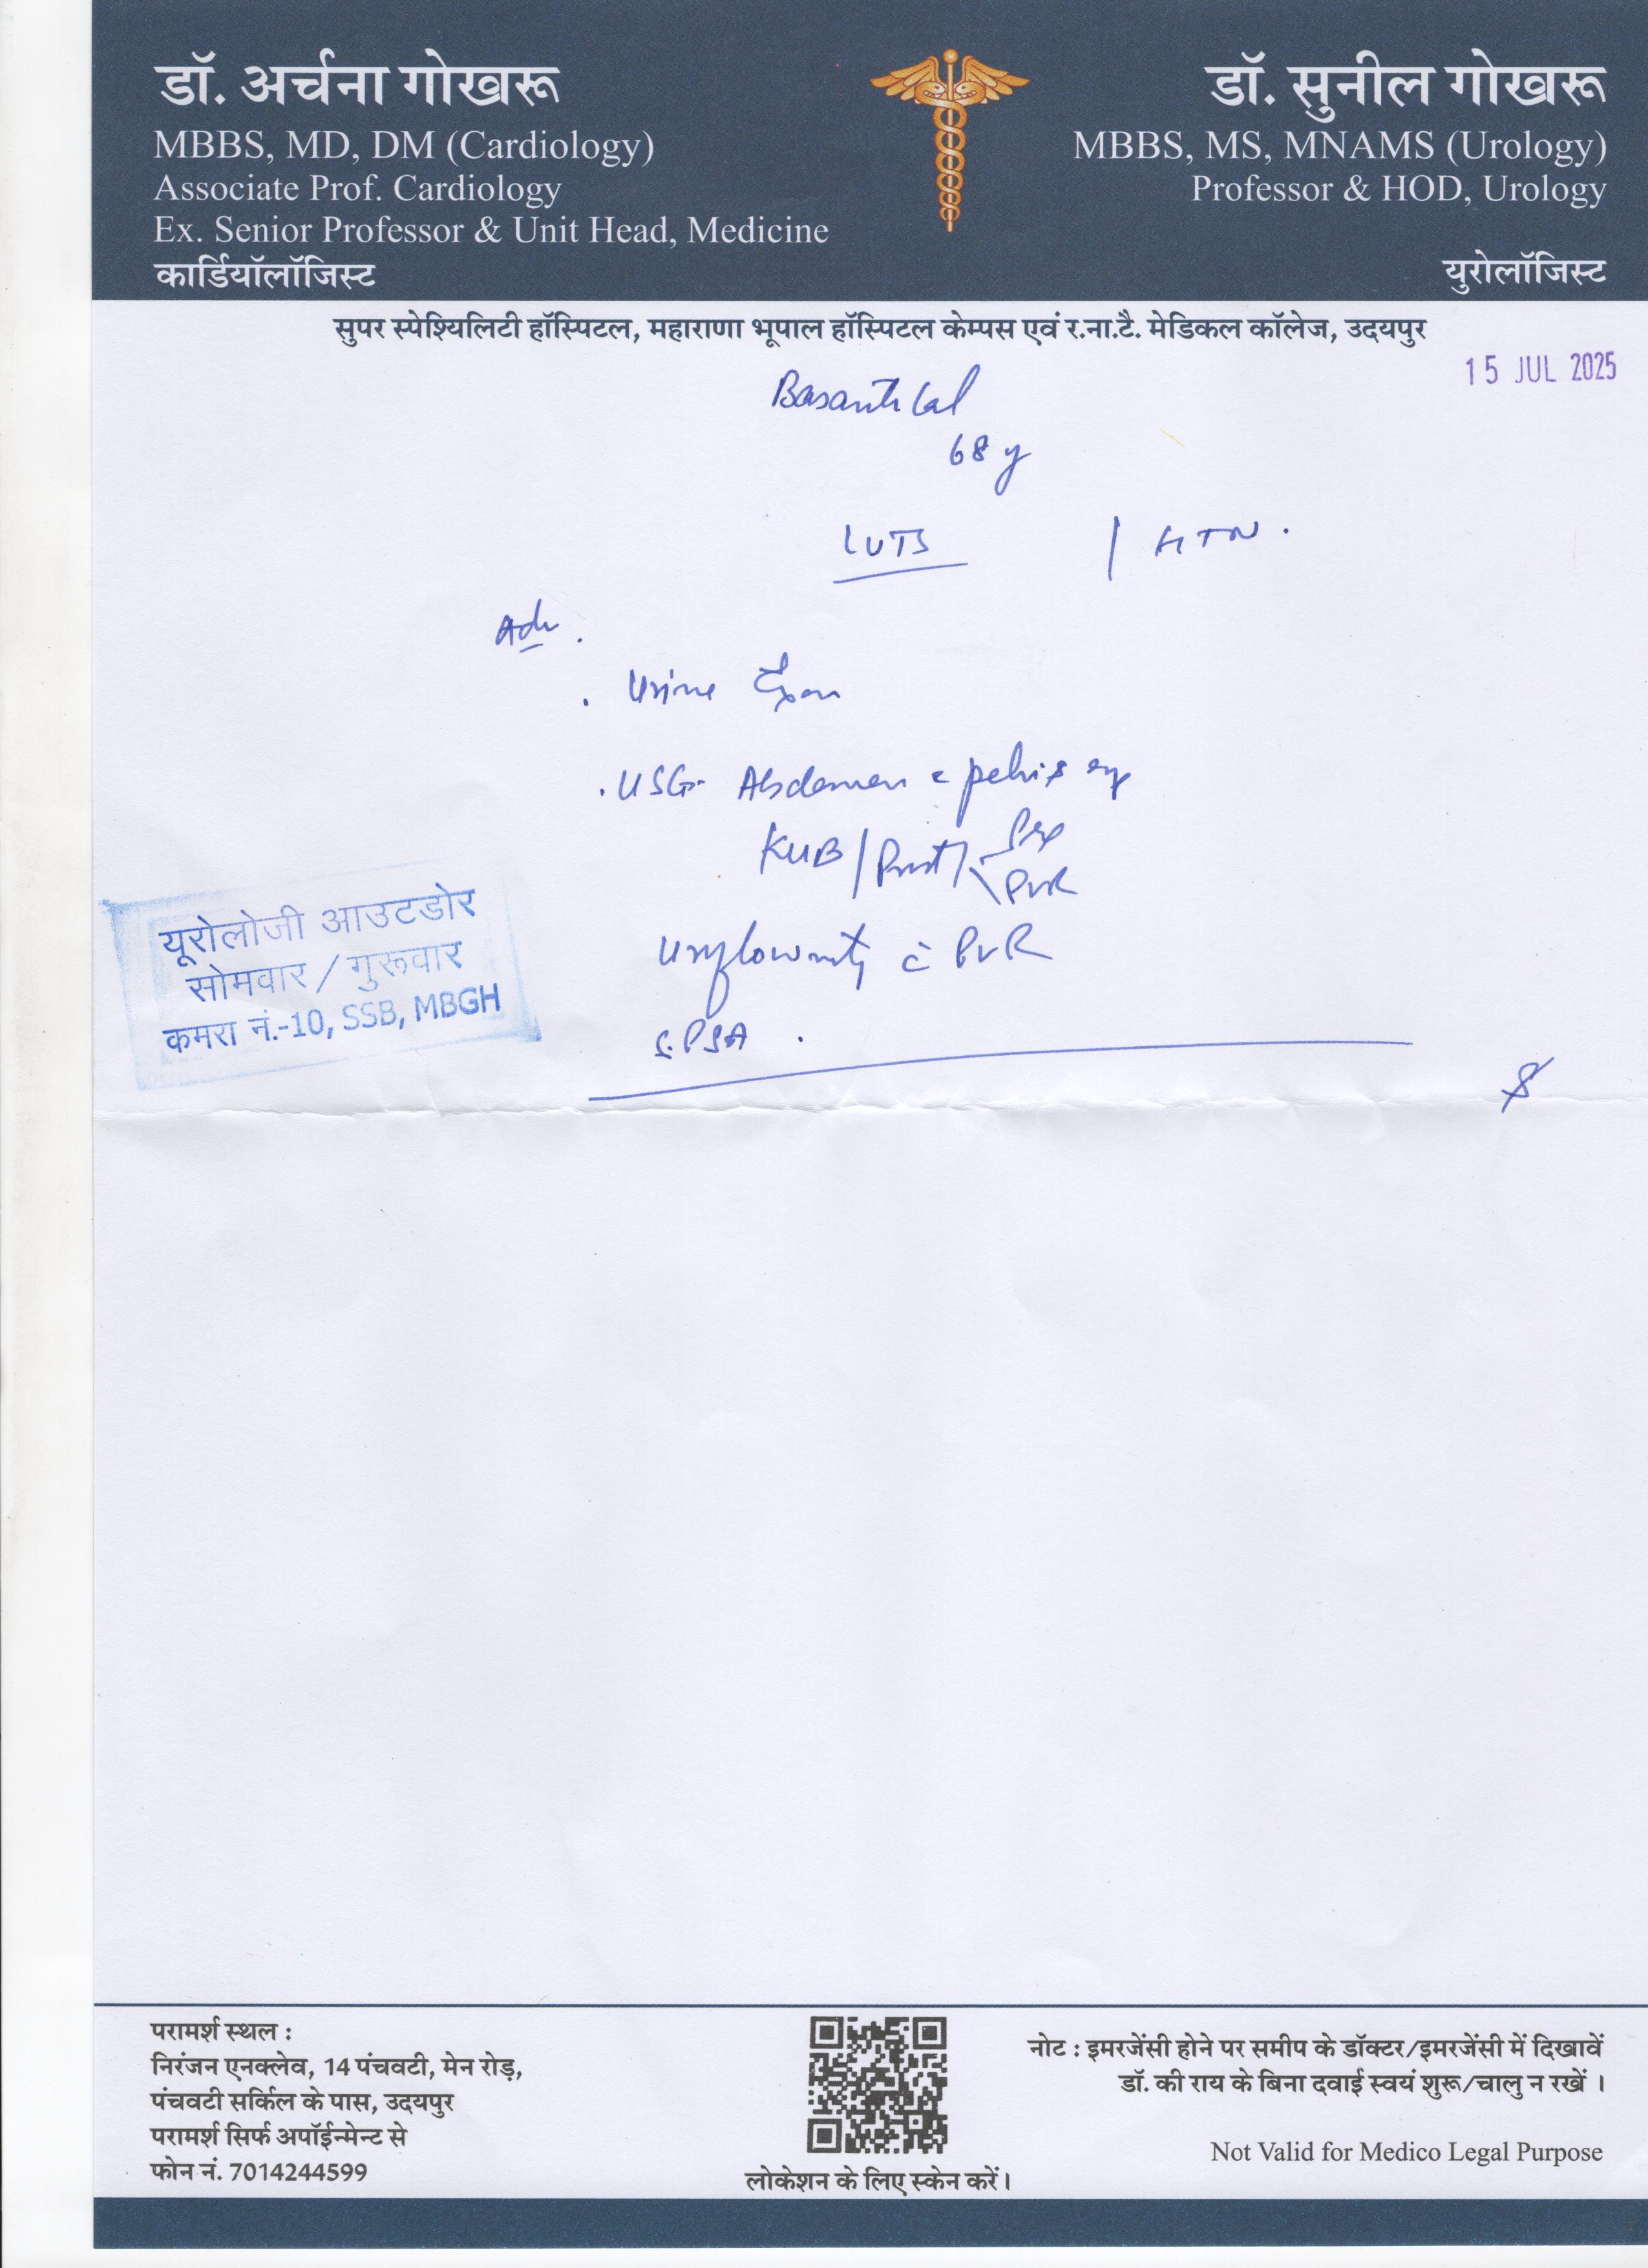 डॉ. अर्चना गोखरू
MBBS, MD, DM (Cardiology)
Associate Prof. Cardiology
Ex. Senior Professor & Unit Head, Medicine
कार्डियॉलॉजिस्ट
डॉ. सुनील गोखरू
MBBS, MS, MNAMS (Urology)
Professor & HOD, Urology
युरोलॉजिस्ट
सुपर स्पेश्यिलिटी हॉस्पिटल, महाराणा भूपाल हॉस्पिटल केम्पस एवं र.ना.टै. मेडिकल कॉलेज, उदयपुर
15 JUL 2025
68 y
LUTS / HTN.
Adv.
. Urine Exam
. USG Abdomen c pelvis
KUB / Prost / Pre
PVR
Uroflowmetry c̄ PVR
S. PSA .
यूरोलोजी आउटडोर
सोमवार / गुरूवार
कमरा नं.-10, SSB, MBGH
परामर्श स्थल :
निरंजन एनक्लेव, 14 पंचवटी, मेन रोड़,
पंचवटी सर्किल के पास, उदयपुर
परामर्श सिर्फ अपॉईन्मेन्ट से
फोन नं. 7014244599
लोकेशन के लिए स्केन करें।
नोट : इमरजेंसी होने पर समीप के डॉक्टर/इमरजेंसी में दिखावें
डॉ. की राय के बिना दवाई स्वयं शुरू/चालु न रखें ।
Not Valid for Medico Legal Purpose